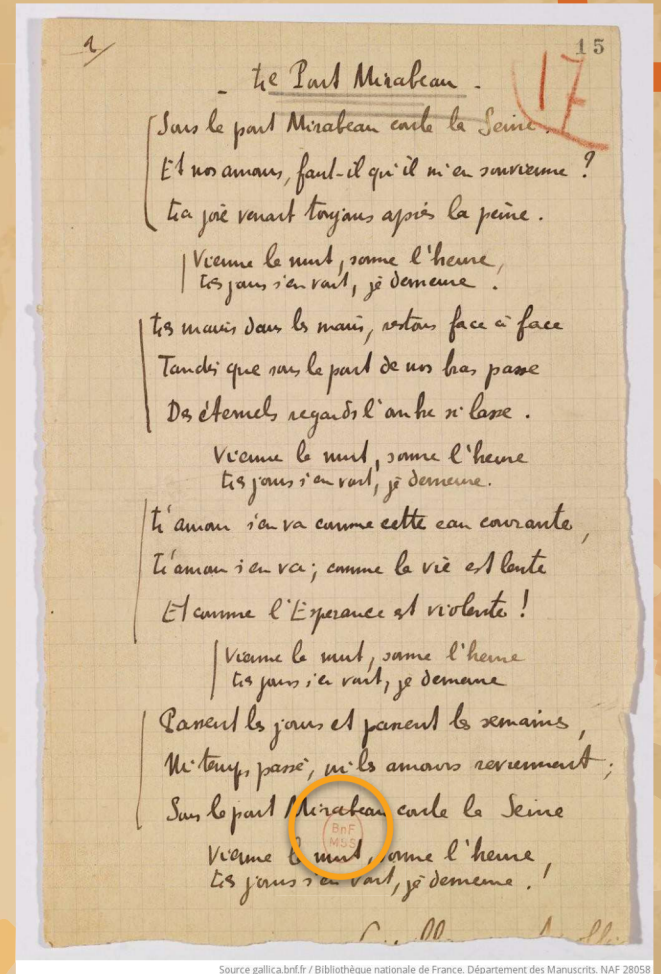 1/
15
17
Le Pont Mirabeau.
Sous le pont Mirabeau coule la Seine.
Et nos amours, faut-il qu'il m'en souvienne ?
La joie venait toujours après la peine.
Vienne la nuit, sonne l'heure,
Les jours s'en vont, je demeure.
Les mains dans les mains, restons face à face
Tandis que sous le pont de nos bras passe
Des éternels regards l'onde si lasse.
Vienne la nuit, sonne l'heure
Les jours s'en vont, je demeure.
L'amour s'en va comme cette eau courante,
L'amour s'en va ; comme la vie est lente
Et comme l'Espérance est violente !
Vienne la nuit, sonne l'heure
Les jours s'en vont, je demeure
Passent les jours et passent les semaines,
Ni temps passé, ni les amours reviennent ;
Sous le pont Mirabeau coule la Seine
BnF
MSS
Vienne la nuit, sonne l'heure,
Les jours s'en vont, je demeure !
Source gallica.bnf.fr / Bibliothèque nationale de France. Département des Manuscrits. NAF 28058